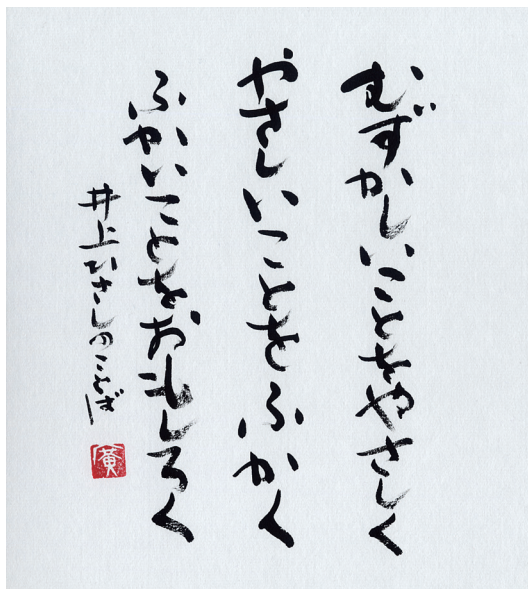 むずかしいことをやさしく
やさしいことをふかく
ふかいことをおもしろく
井上ひさしのことば
廣